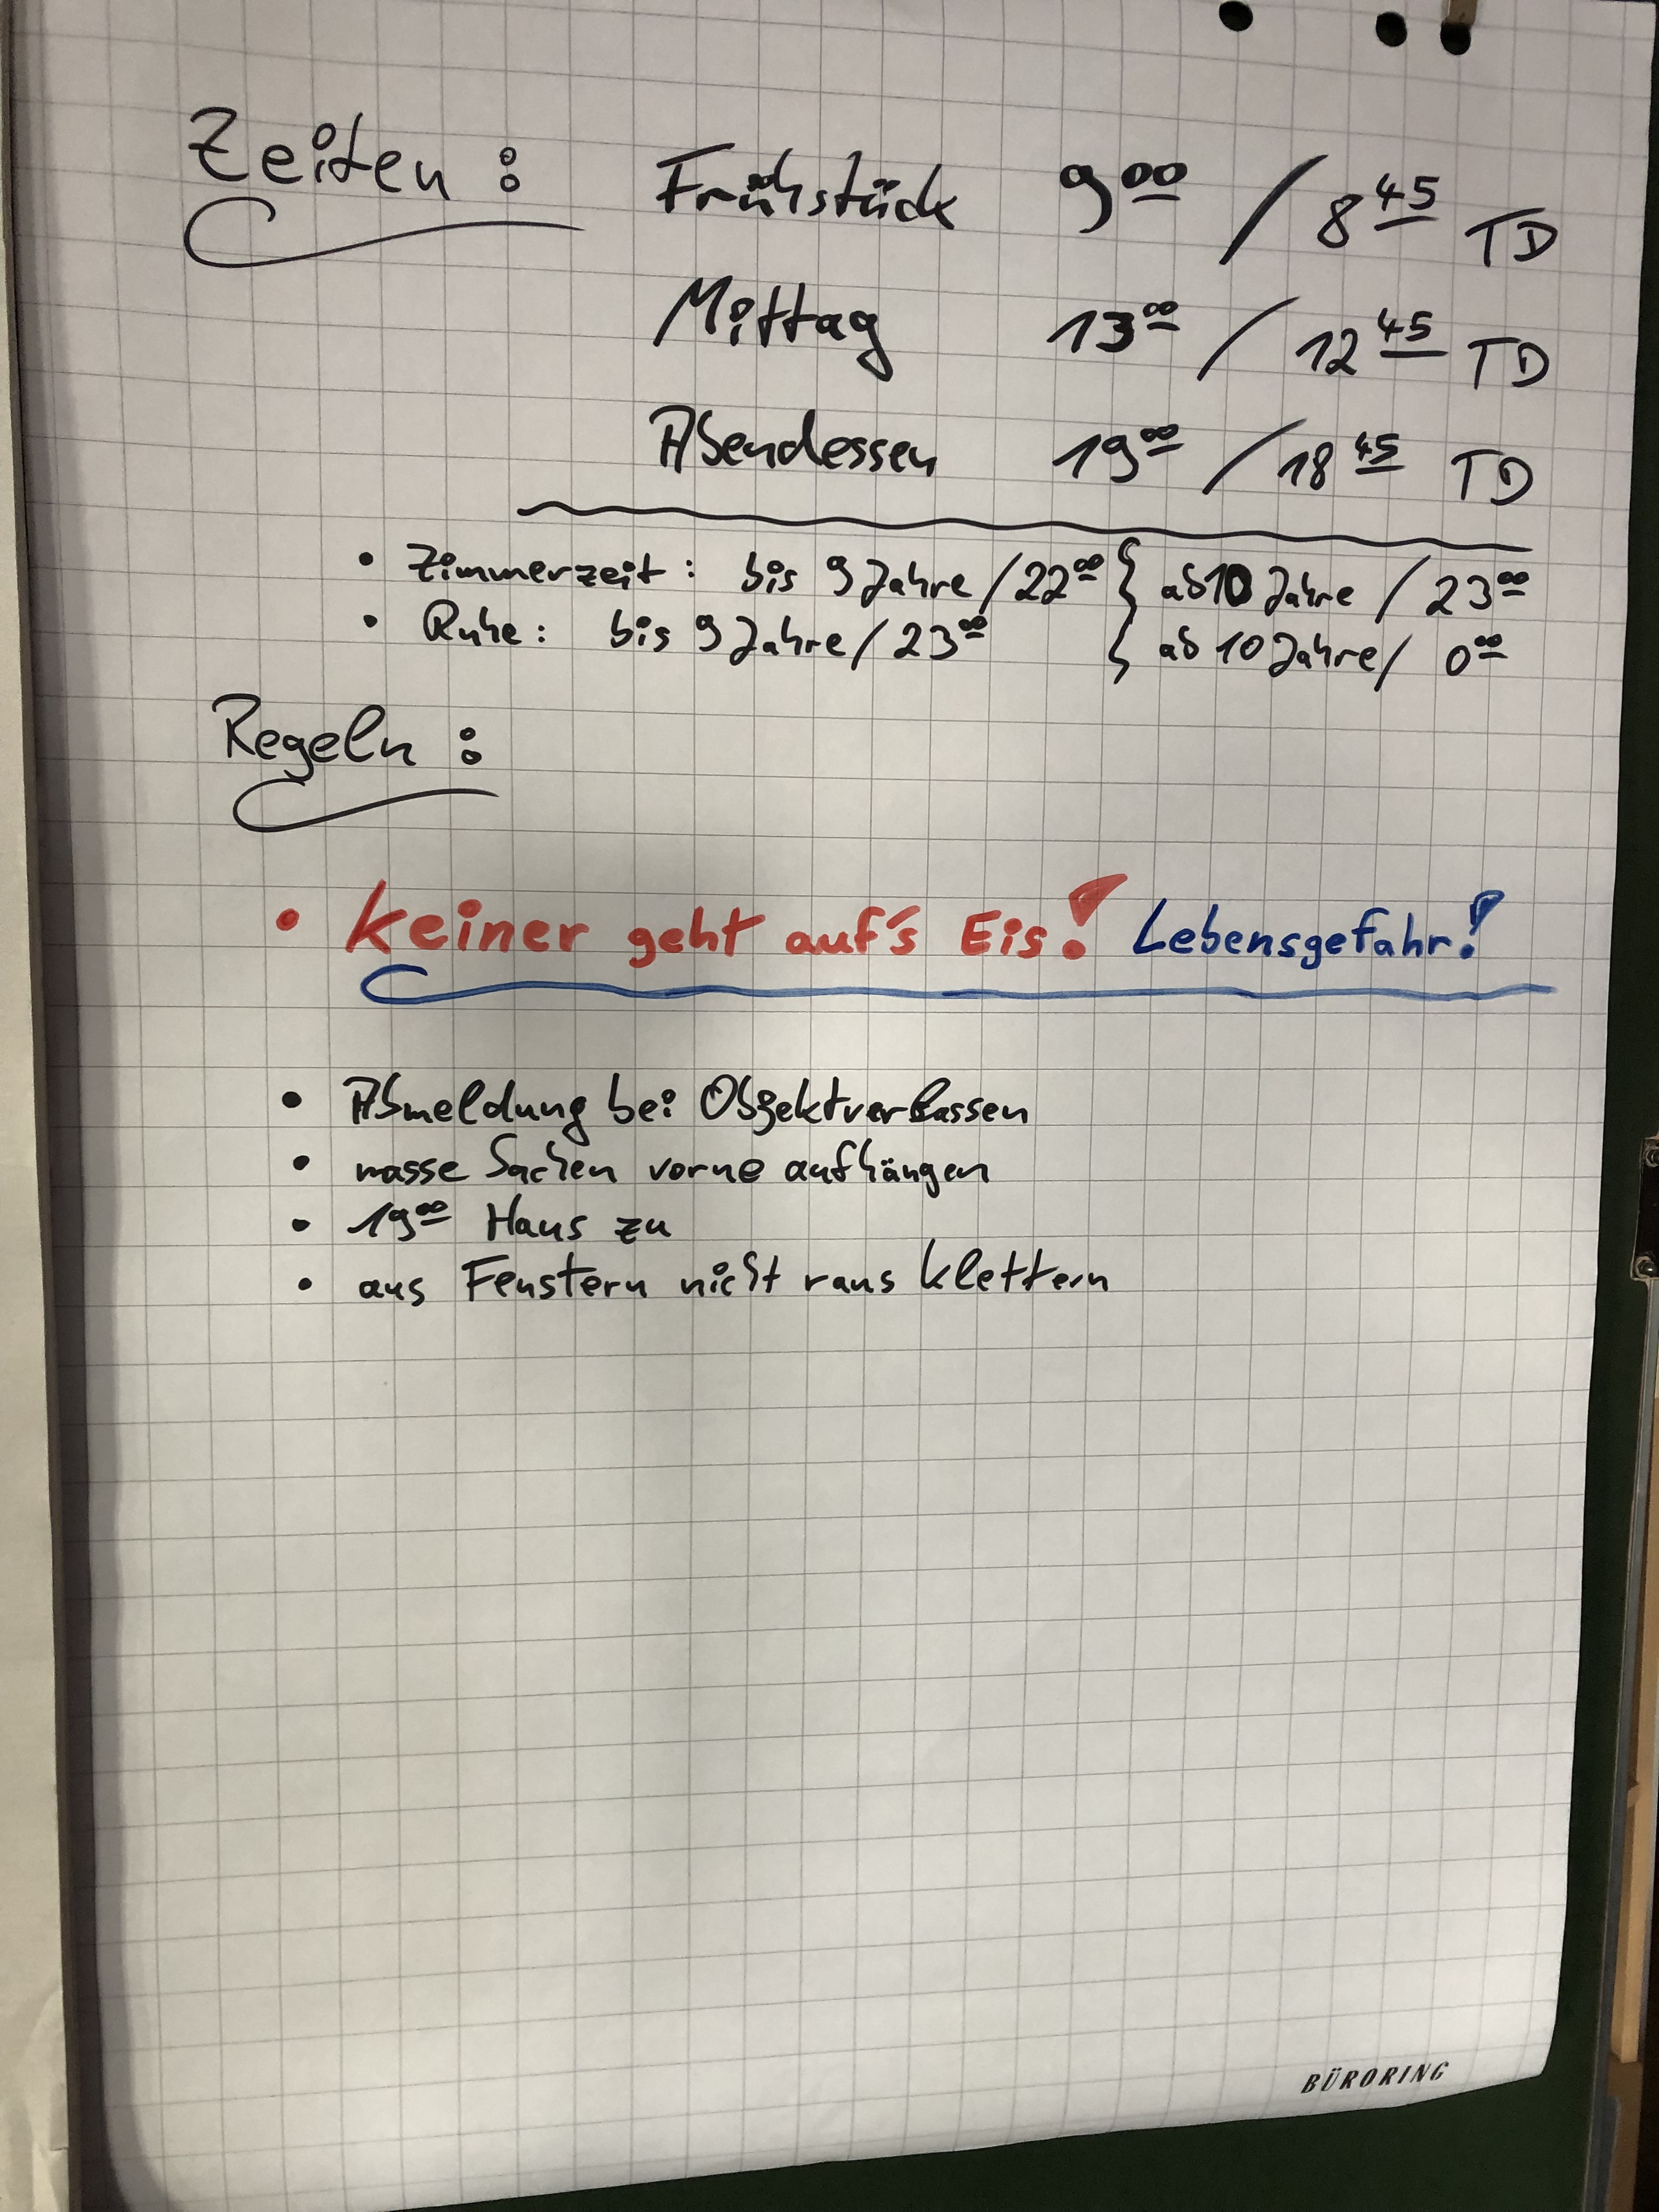 Zeiten : Frühstück 9 00 / 8 45 TD
Mittag 13 00 / 12 45 TD
Abendessen 19 00 / 18 45 TD
• Zimmerzeit : bis 9 Jahre / 22 00 } ab 10 Jahre / 23 00
• Ruhe : bis 9 Jahre / 23 00 } ab 10 Jahre / 0 00
Regeln :
• keiner geht auf's Eis! Lebensgefahr!
• Abmeldung bei Objektverlassen
• nasse Sachen vorne aufhängen
• 19 00 Haus zu
• aus Fenstern nicht raus klettern
BÜRORING